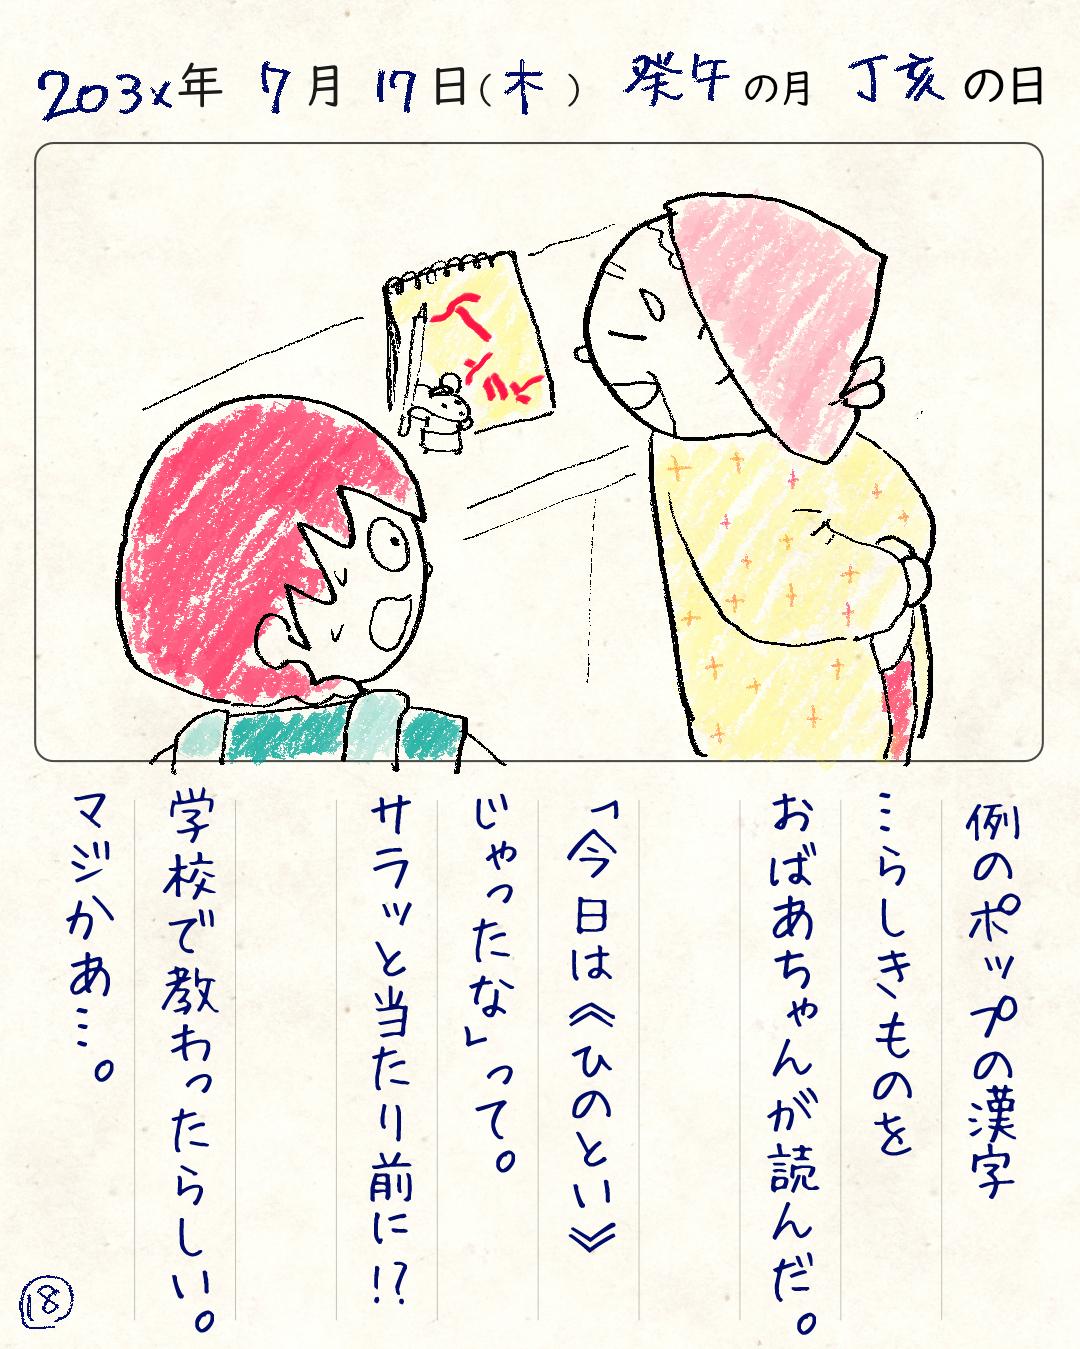 203x年 7月 17日(木) 癸午の月 丁亥の日
例のポップの漢字
…らしきものを
おばあちゃんが読んだ。
「今日は《ひのとい》
じゃったな」って。
サラッと当たり前に!?
学校で教わったらしい。
マジかあ…。
18